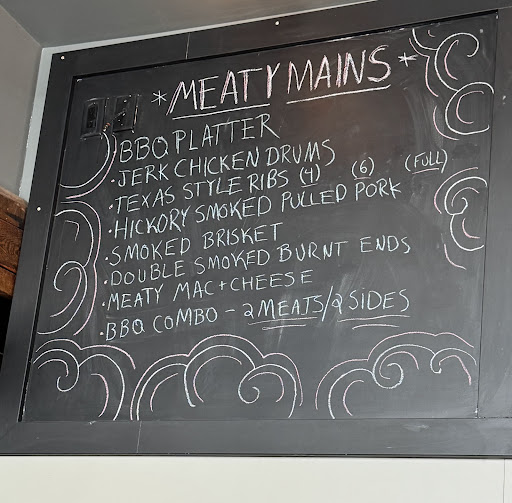 *MEATY MAINS*
BBQ PLATTER
·JERK CHICKEN DRUMS
·TEXAS STYLE RIBS (4) (6) (FULL)
·HICKORY SMOKED PULLED PORK
·SMOKED BRISKET
·DOUBLE SMOKED BURNT ENDS
·MEATY MAC+CHEESE
·BBQ COMBO - 2 MEATS/2 SIDES